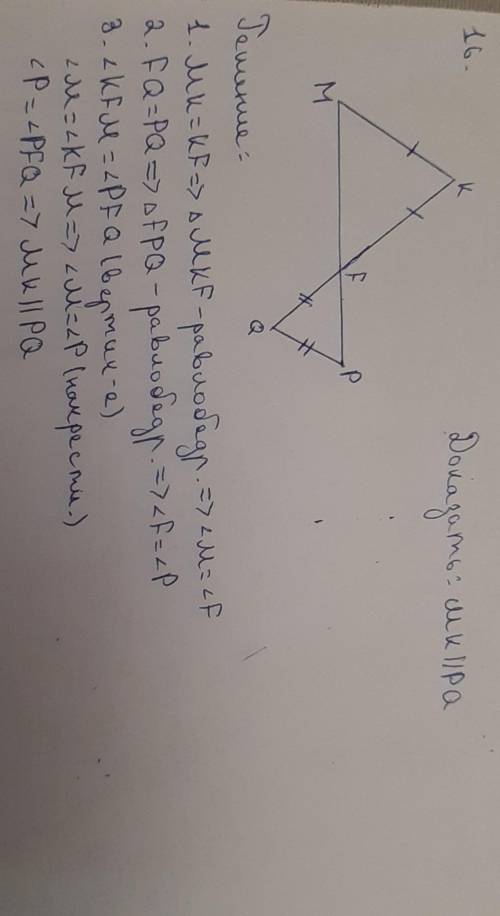 16.
M
K
F
Q
P
Доказать: MK||PQ
Решение:
1. MK=KF=> △MKF-равнобедр. => ∠M=∠F
2. FQ=PQ=> △FPQ-равнобедр. => ∠F=∠P
3. ∠KFM=∠PFQ (вертик-е)
∠M=∠KFM=> ∠M=∠P (накрестл.)
∠P=∠PFQ => MK||PQ